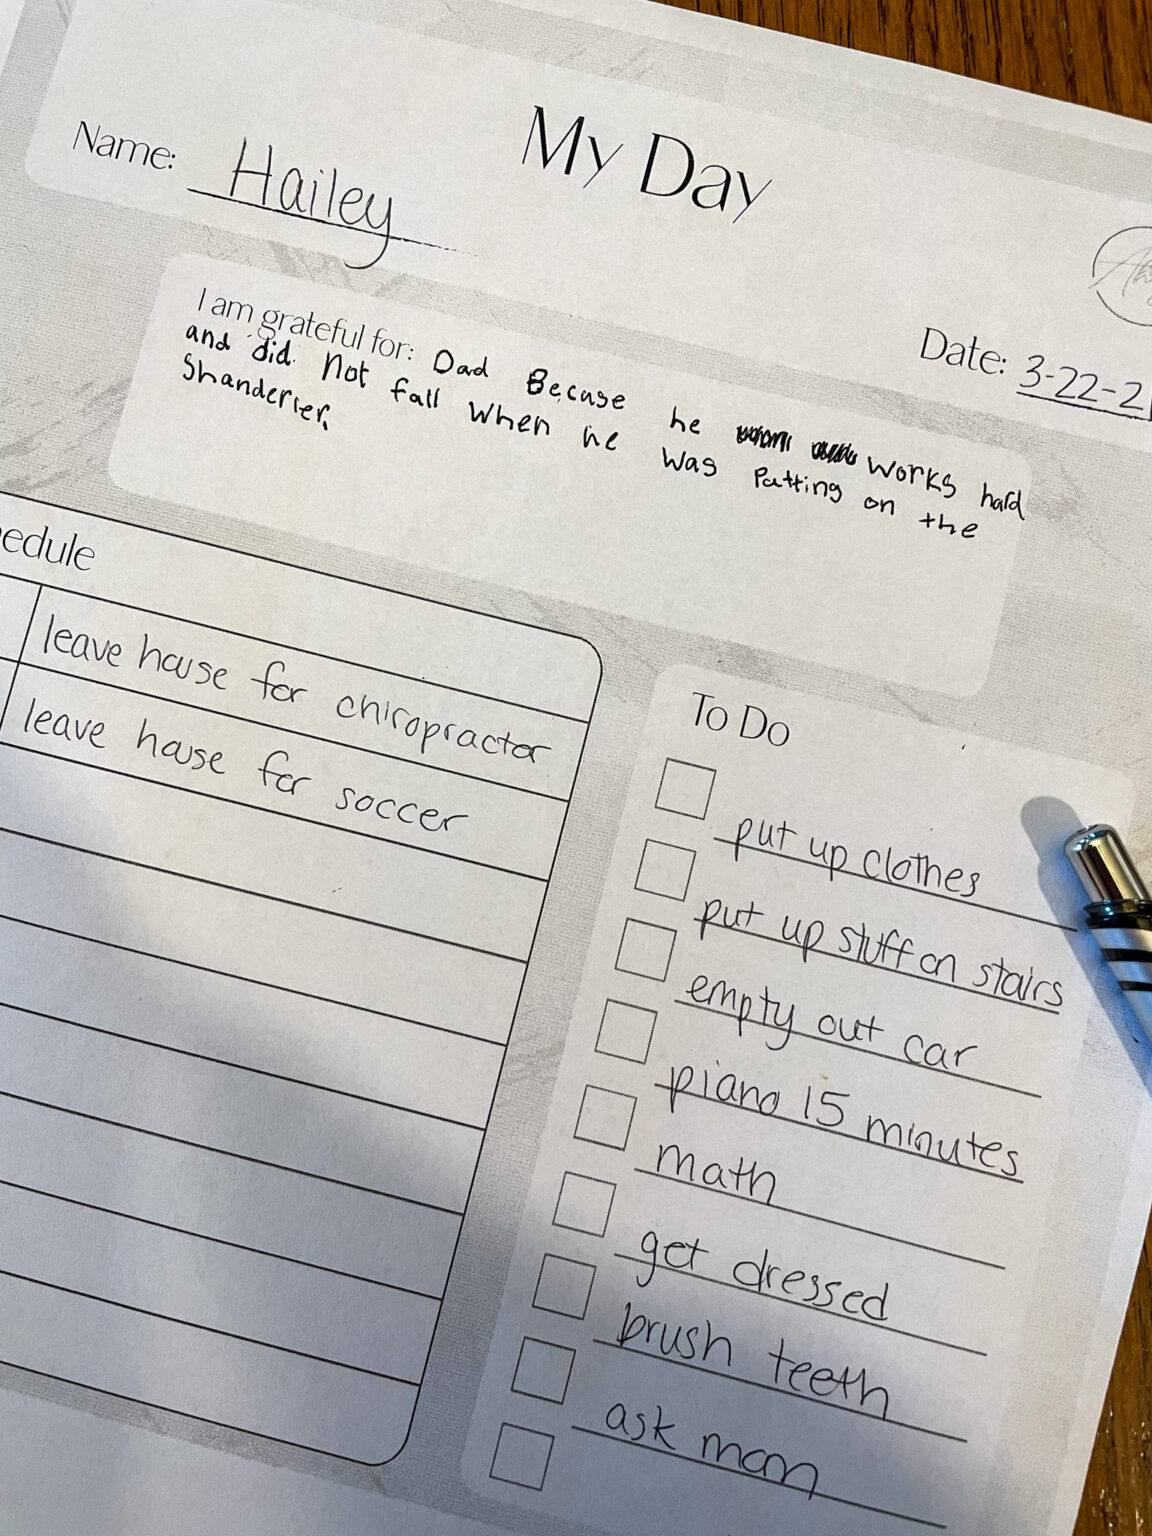 My Day
Name: Hailey
Date: 3-22-21
I am grateful for: Dad Becuse he works hard
and did Not fall when he was Putting on the
Shanderler.
edule
leave house for chiropractor
leave house for soccer
To Do
put up clothes
put up stuff on stairs
empty out car
piano 15 minutes
math
get dressed
brush teeth
ask mom